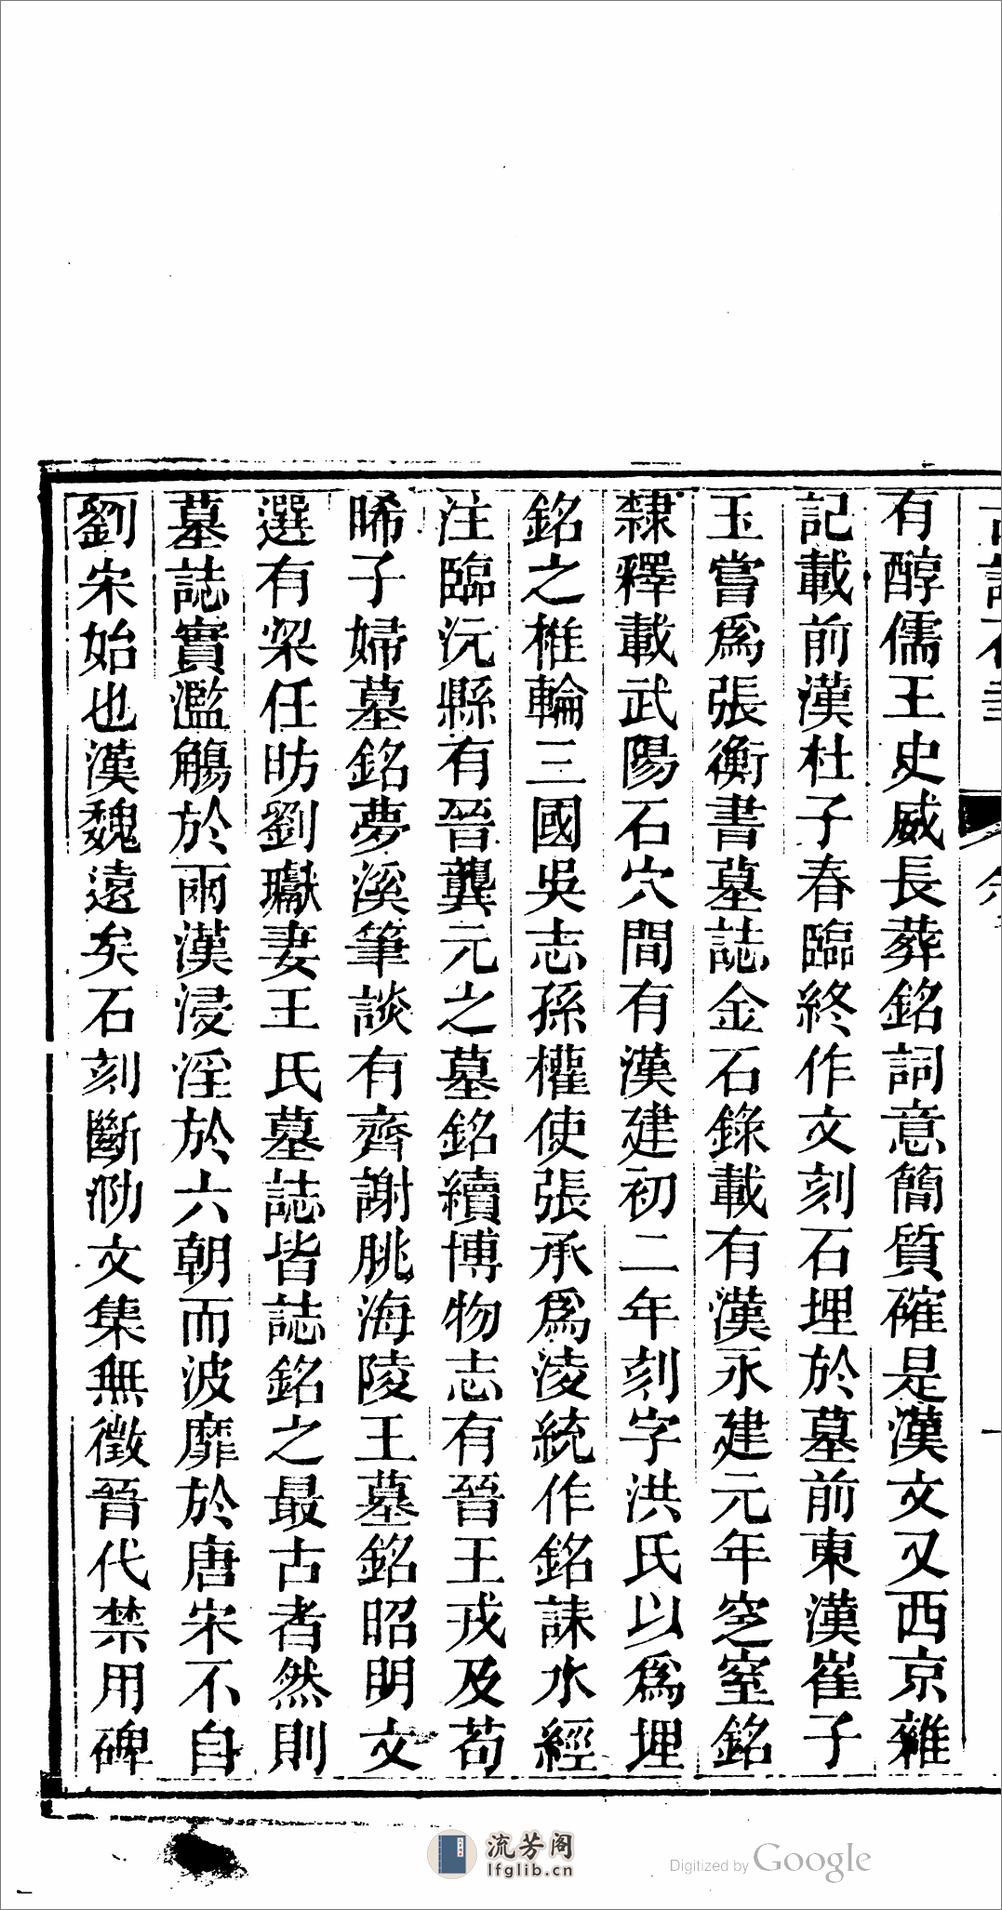 有醇儒王史威長葬銘詞意簡質確是漢文又西京雜
記載前漢杜子春臨終作文刻石埋於墓前東漢崔子
玉嘗爲張衡書墓誌金石錄載有漢永建元年窆室銘
隸釋載武陽石穴間有漢建初二年刻字洪氏以爲埋
銘之椎輪三國吳志孫權使張承爲淩統作銘誄水經
注臨沅縣有晉龔元之墓銘續博物志有晉王戎及苟
晞子婦墓銘夢溪筆談有齊謝朓海陵王墓銘昭明文
選有梁任昉劉瓛妻王氏墓誌皆誌銘之最古者然則
墓誌實濫觴於兩漢浸淫於六朝而波靡於唐宋不自
劉宋始也漢魏遠矣石刻斷泐文集無徵晉代禁用碑
流芳阁
lfglib.cn
Digitized by Google